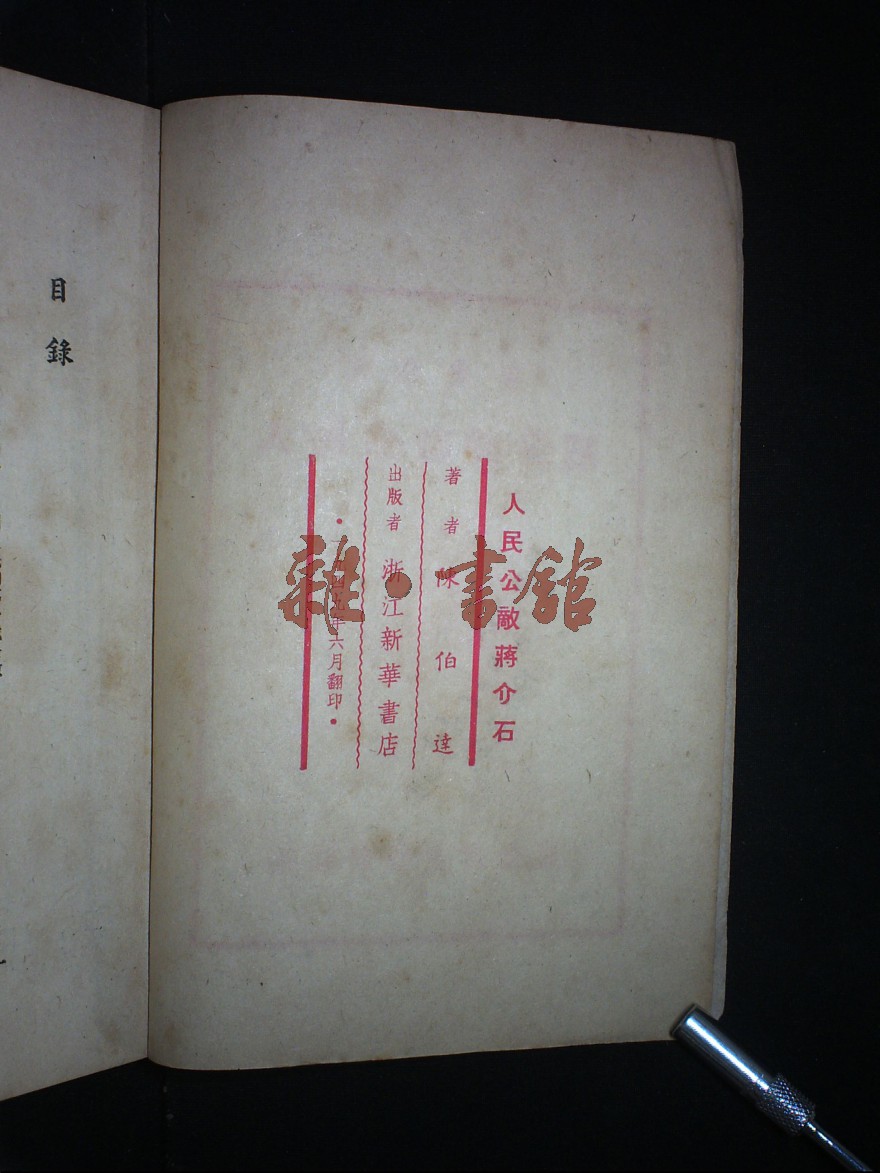 人民公敵蔣介石
著者 陳伯達
出版者 浙江新華書店
•一九四九年六月翻印•
目錄
雜•書館